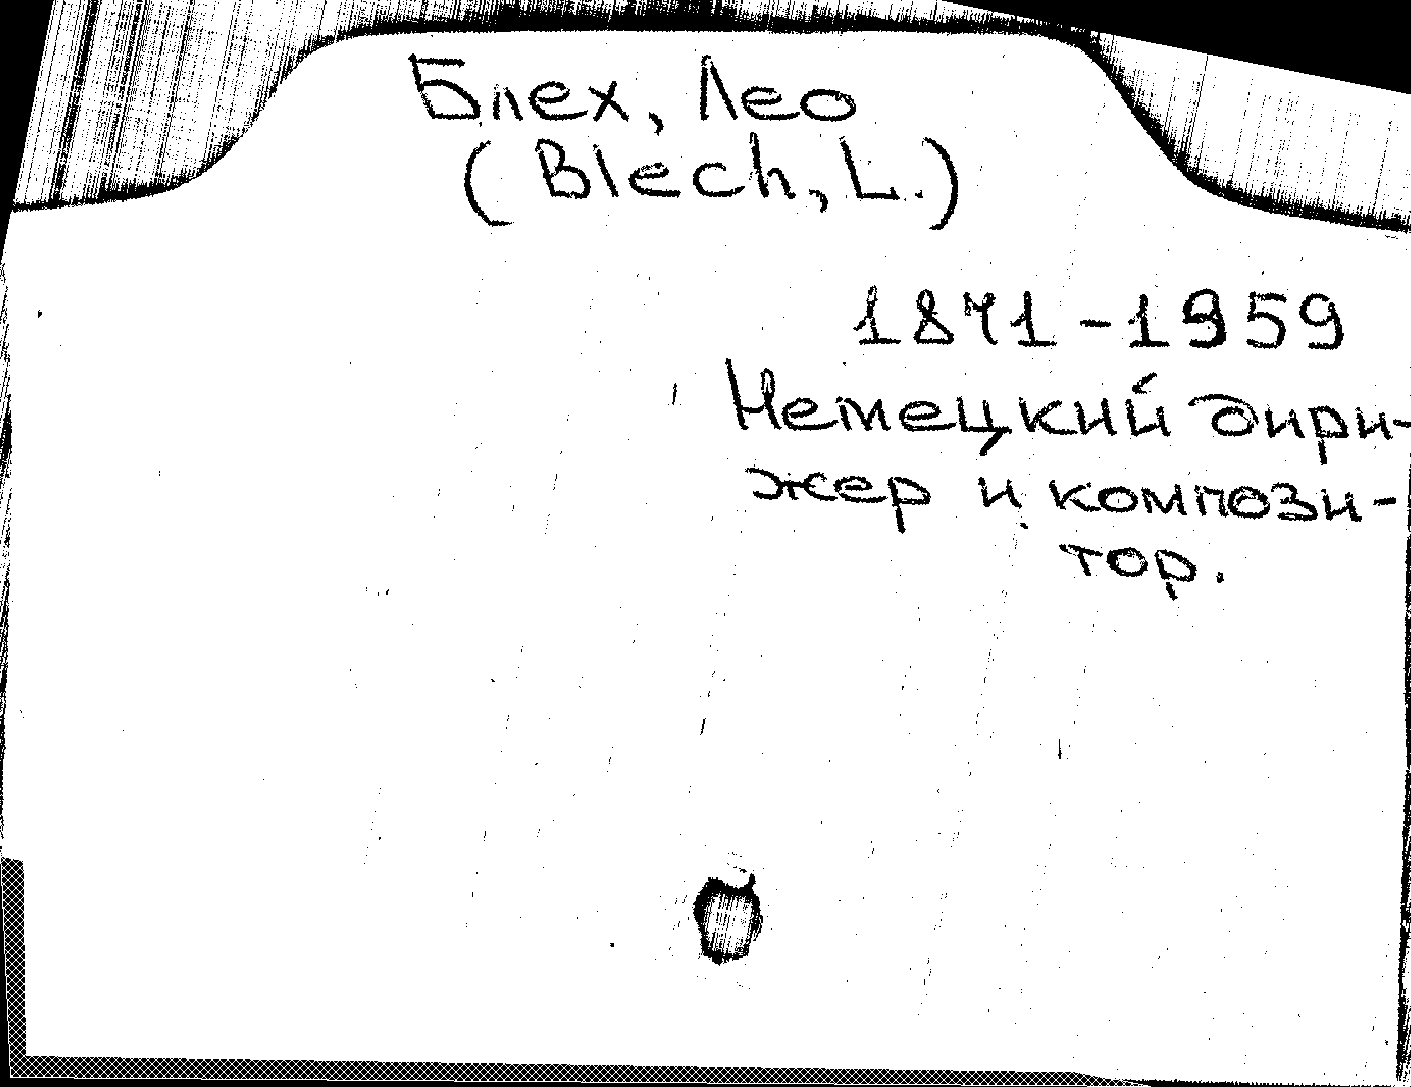 Блех, Лео
(Blech, L.)
1871-1959
Немецкий дири-
жер и компози-
тор.